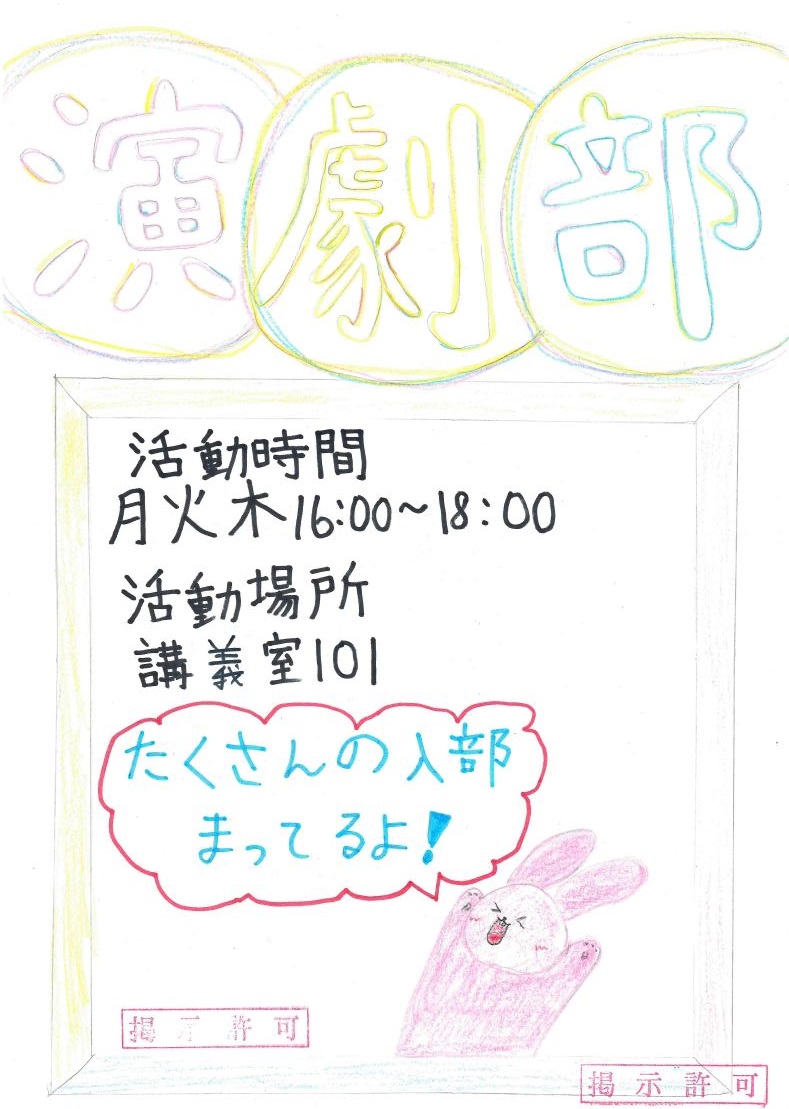 演劇部
活動時間
月火木16:00~18:00
活動場所
講義室101
たくさんの入部
まってるよ!
掲示許可
掲示許可